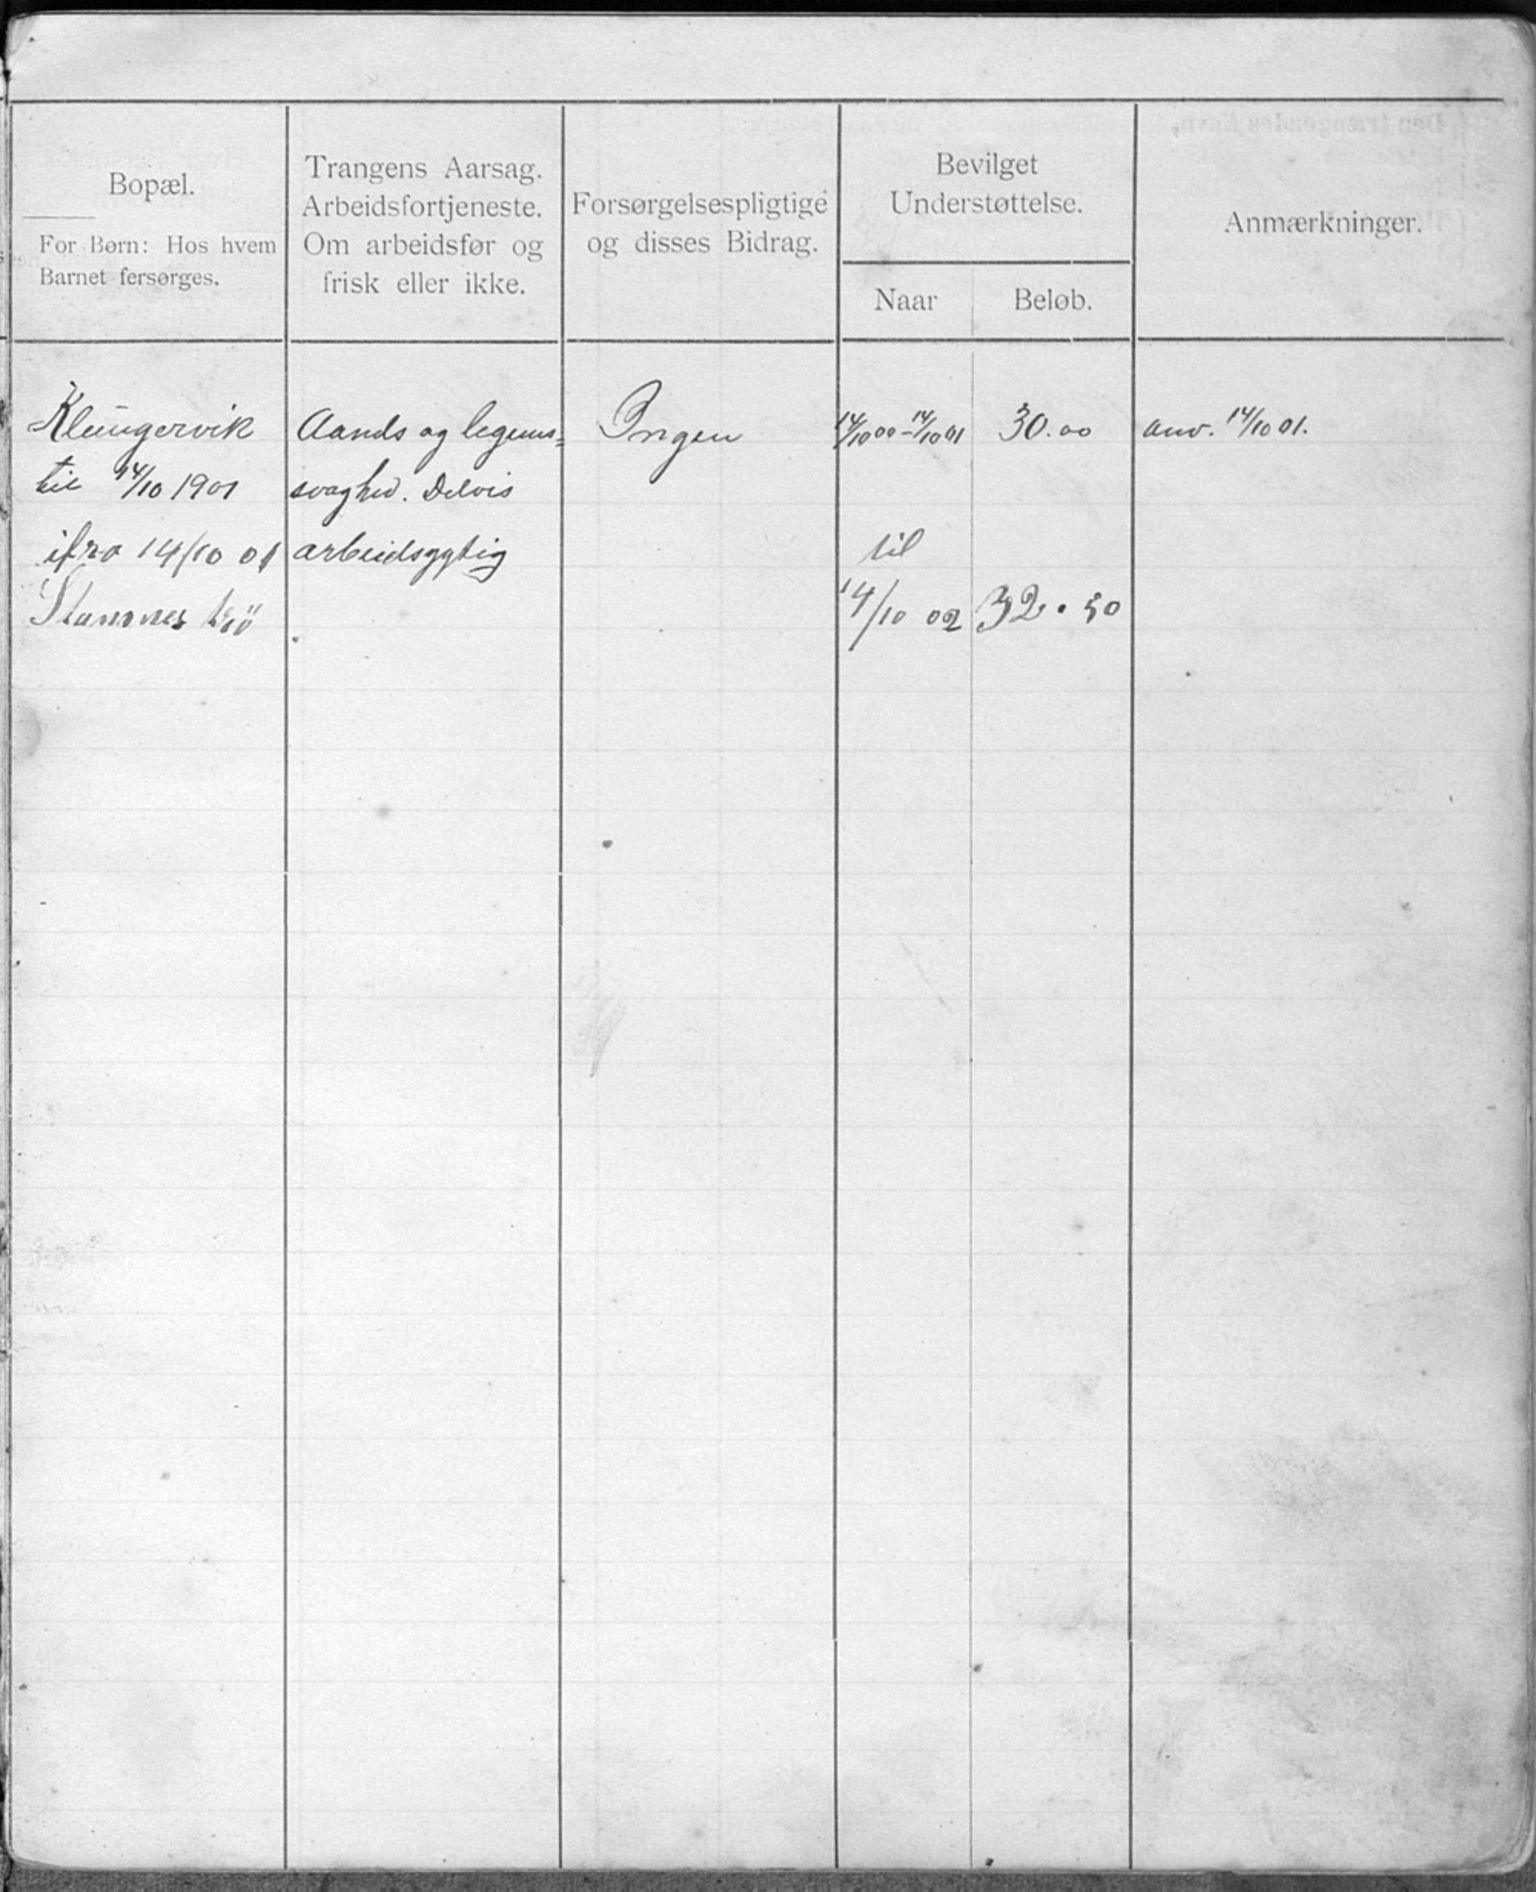 Bopæl.
For Børn: Hos hvem
Barnet fersørges.
Trangens Aarsag.
Arbeidsfortjeneste.
Om arbeidsfør og
frisk eller ikke.
Forsørgelsespligtige
og disses Bidrag.
Bevilget
Understøttelse.
Naar
Beløb.
Anmærkninger.
Klüngervik
til 14/10 1901
ifra 14/10 01
Stamnes
Aands og legems-
svaghed. Delvis
arbeidsygtig
Ingen
14/10 00 – 14/10 01
til
14/10 02
30.00
32.50
anv. 14/10 01.